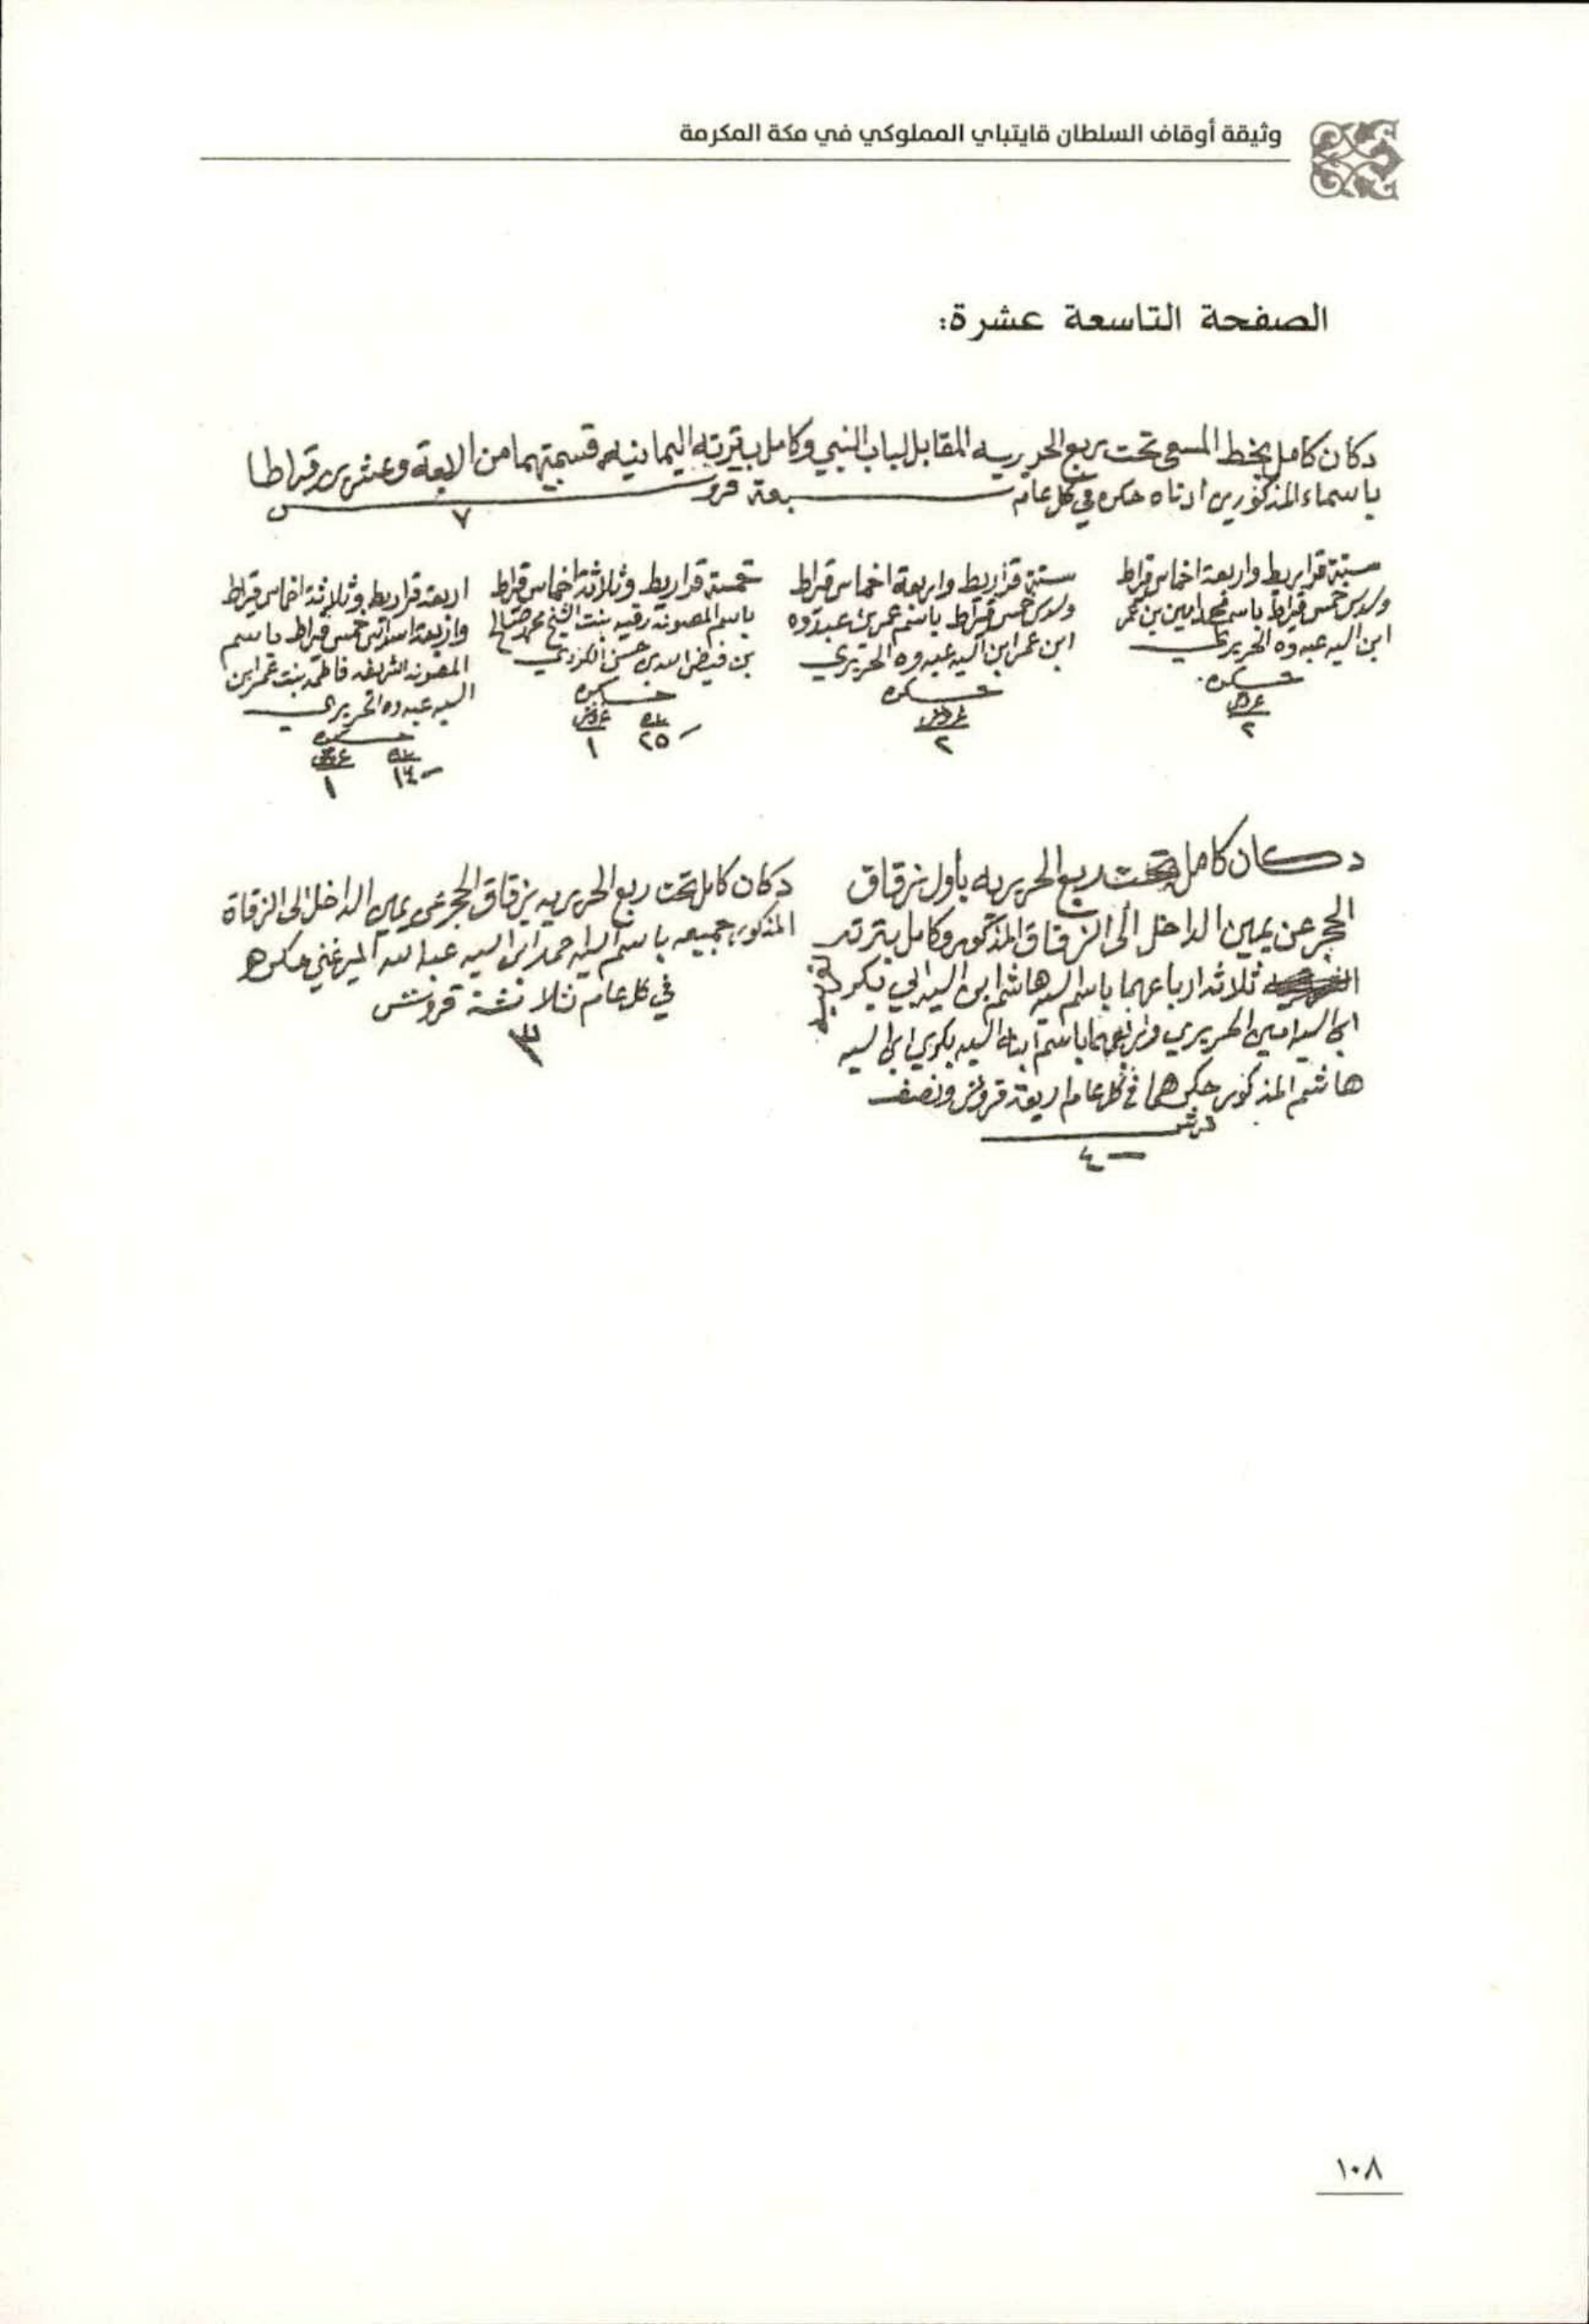 وثيقة أوقاف السلطان قايتباي المملوكي في مكة المكرمة
الصفحة التاسعة عشرة:
دكان كامل بخط المسعى تحت ربع الحريريه المقابل لباب النبي وكامل بترته اليمانيه قسمتهما من الاربعة وعشرين قراطا
باسماء المذكورين ادناه حكره في كل عام سبعة قروش
٧
ستة قراريط واربعة اخماس قراط
وسدس خمس قيراط باسم محمد امين بن عمر
ابن السيد عبدوه الحريري
حكره
غروش
٢
ستة قراريط واربعة اخماس قراط
وسدس خمس قيراط باسم عمر بن عبدوه
ابن عمر ابن السيد عبدوه الحريري
حكره
غروش
٢
خمسة قراريط وثلاثة اخماس قراط
باسم المصونة رقيه بنت الشيخ محمد صالح
بن فيض الله بن حسن الكردي
حكره
غروش
١
٢٥
اربعة قراريط وثلاثة اخماس قراط
واربعة اسداس خمس قيراط باسم
المصونه الشريفه فاطمة بنت عمر ابن
السيد عبدوه الحريري
حكره
غروش
١
١٤
دكان كامل تحت ربع الحريريه بأول زقاق
الحجر عن يمين الداخل الى الزقاق المذكور وكامل بترته
ثلاثة ارباعهما باسم السيد هاشم ابن السيد ابي بكر
ابن السيد امين الحريري وربعهما باسم ابنه السيد بكري ابن السيد
هاشم المذكور حكرهما في كل عام اربعة قروش ونصف
قرش
٤
دكان كامل تحت ربع الحريريه بزقاق الحجر عن يمين الداخل الى الزقاق
المذكور جميعه باسم السيد احمد ابن السيد عبد الله الميرغني حكره
في كل عام ثلاثة قروش
٣
١٠٨